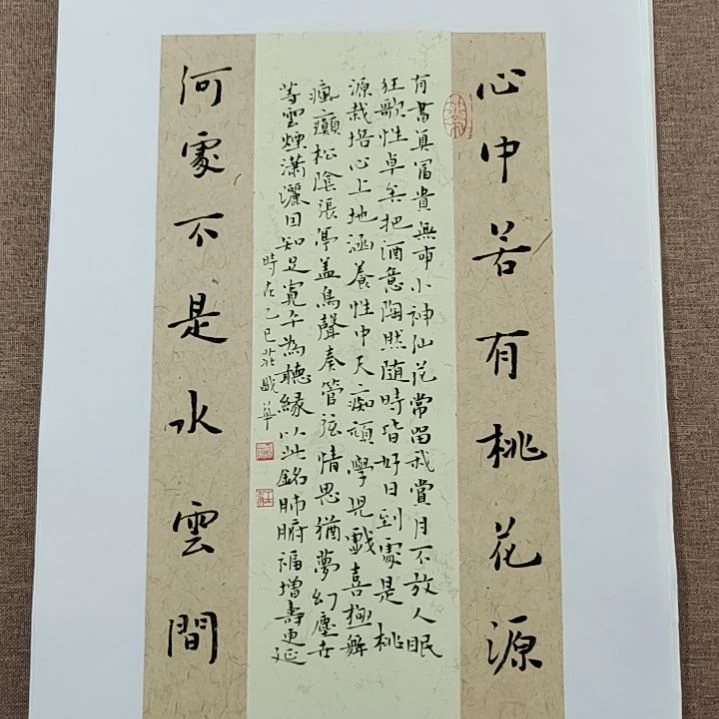 心中若有桃花源
有書真富貴無事小神仙花常留我賞月不放人眠
狂歌性卓矣把酒意陶然随時皆好日到處是桃
源栽培心上地涵養性中天痴頑學兒戲喜極舞
瘋癲松陰張亭蓋鳥聲奏管弦情思猶夢幻塵世
等雲煙瀟灑因知足寬平為聽緣以此銘肺腑福增壽更延
時在乙巳莊華
何處不是水雲間